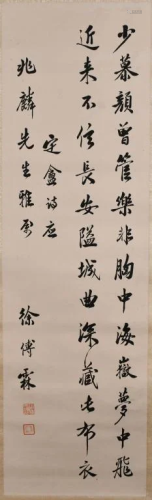 少慕顏曾管樂非胸中海嶽夢中飛
近來不信長安隘城曲深藏此布衣
定盦詩應
兆麟先生雅屬
徐傅霖